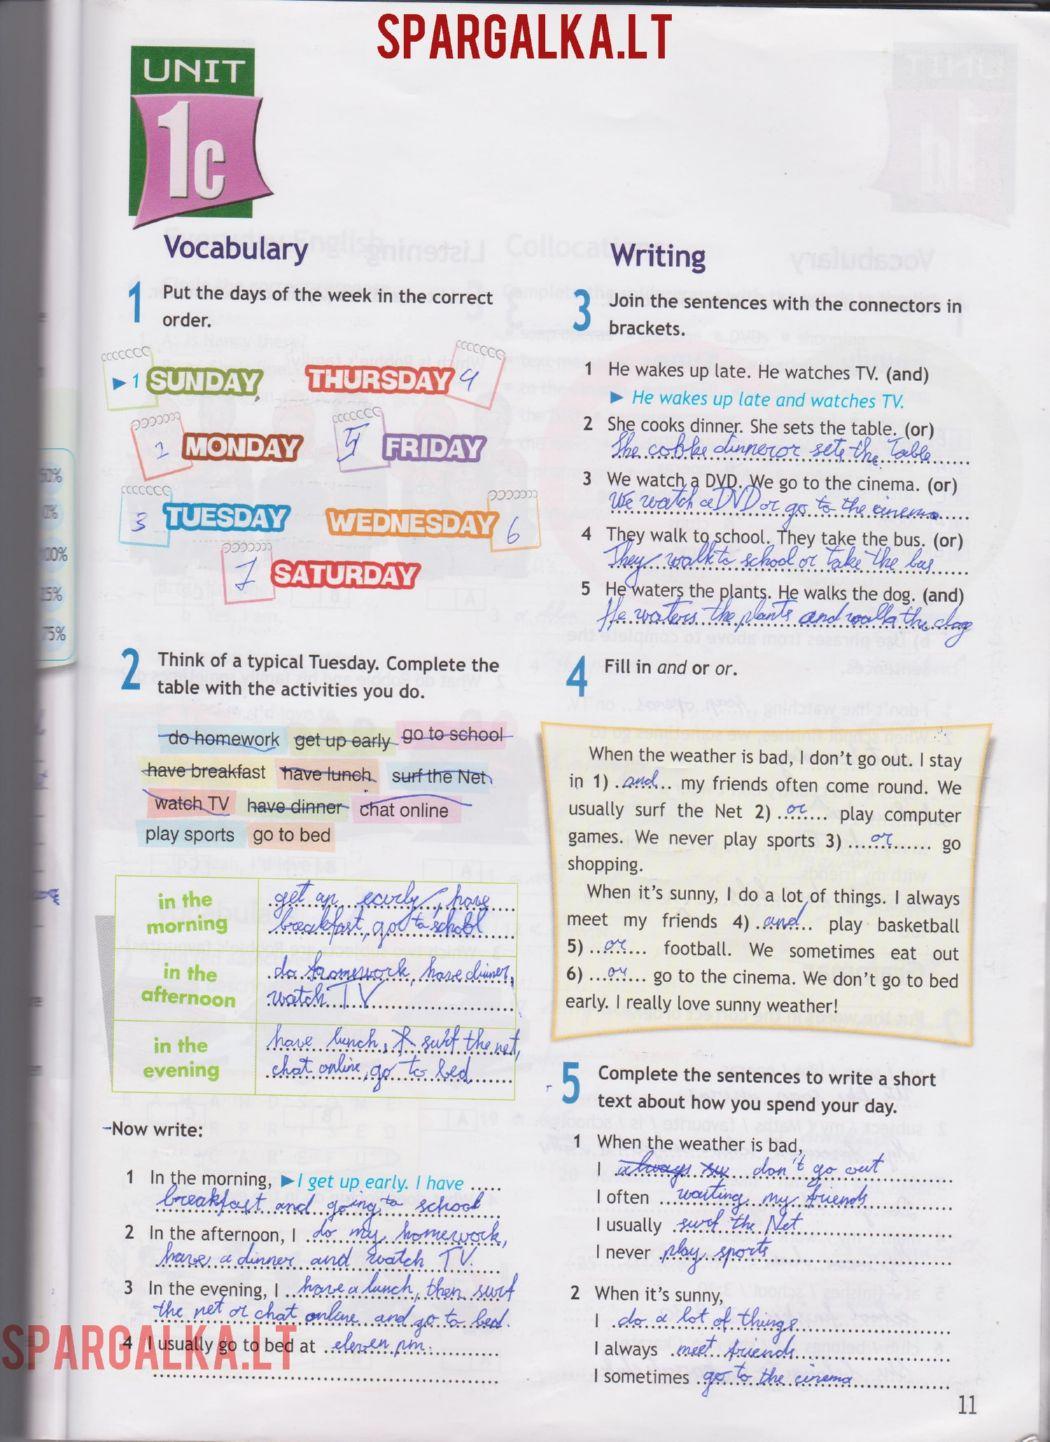 SPARGALKA.LT
UNIT
1c
Vocabulary
1 Put the days of the week in the correct
order.
▶ 1 SUNDAY
THURSDAY 4
MONDAY
FRIDAY
3 TUESDAY
WEDNESDAY 6
7 SATURDAY
2 Think of a typical Tuesday. Complete the
table with the activities you do.
do homework get up early go to school
have breakfast have lunch surf the Net
watch TV have dinner chat online
play sports go to bed
in the
morning
get up early, have
breakfast, go to school
in the
afternoon
do homework, have dinner,
watch TV
in the
evening
have lunch, surf the net,
chat online, go to bed
Now write:
1 In the morning, ▶ I get up early. I have
breakfast and going to school
2 In the afternoon, I do my homework,
have a dinner and watch TV.
3 In the evening, I have a lunch, then surf
the net or chat online and go to bed.
4 I usually go to bed at eleven pm.
SPARGALKA.LT
Writing
3 Join the sentences with the connectors in
brackets.
1 He wakes up late. He watches TV. (and)
▶ He wakes up late and watches TV.
2 She cooks dinner. She sets the table. (or)
She dinner or sets the table
3 We watch a DVD. We go to the cinema. (or)
We watch a DVD or go to the cinema
4 They walk to school. They take the bus. (or)
They walk to school or take the bus
5 He waters the plants. He walks the dog. (and)
He waters the plants and walks the dog
4 Fill in and or or.
When the weather is bad, I don't go out. I stay
in 1) and my friends often come round. We
usually surf the Net 2) or play computer
games. We never play sports 3) or go
shopping.
When it's sunny, I do a lot of things. I always
meet my friends 4) and play basketball
5) or football. We sometimes eat out
6) or go to the cinema. We don't go to bed
early. I really love sunny weather!
5 Complete the sentences to write a short
text about how you spend your day.
1 When the weather is bad,
I don't go out
I often waiting my friends
I usually surf the Net
I never play sports
2 When it's sunny,
I do a lot of things
I always meet friends
I sometimes go to the cinema
11